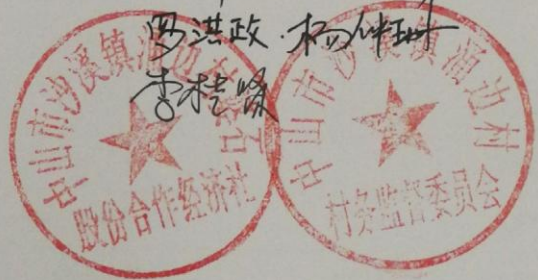 罗洪政 杨仲珊
李桂贤
中山市沙溪镇涌边村
股份合作经济社
中山市沙溪镇涌边村
村务监督委员会